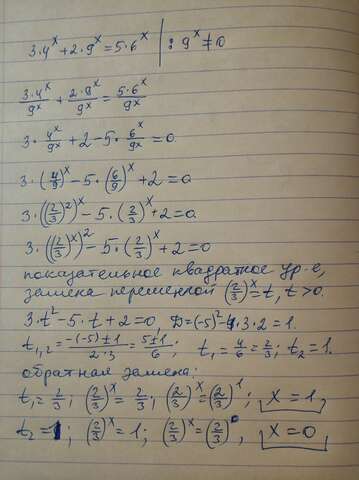 3·4^x + 2·9^x = 5·6^x | : 9^x ≠ 0
3·4^x/9^x + 2·9^x/9^x = 5·6^x/9^x
3·4^x/9^x + 2 - 5·6^x/9^x = 0
3·(4/9)^x - 5·(6/9)^x + 2 = 0
3·((2/3)^2)^x - 5·(2/3)^x + 2 = 0
3·((2/3)^x)^2 - 5·(2/3)^x + 2 = 0
показательное квадратное ур-е,
замена переменной (2/3)^x = t, t > 0.
3·t^2 - 5·t + 2 = 0, D = (-5)^2 - 4·3·2 = 1.
t_1,2 = (-(-5) ± 1)/(2·3) = (5 ± 1)/6; t_1 = 4/6 = 2/3; t_2 = 1.
обратная замена:
t_1 = 2/3; (2/3)^x = 2/3; (2/3)^x = (2/3)^1; x = 1,
t_2 = 1; (2/3)^x = 1; (2/3)^x = (2/3)^0, x = 0